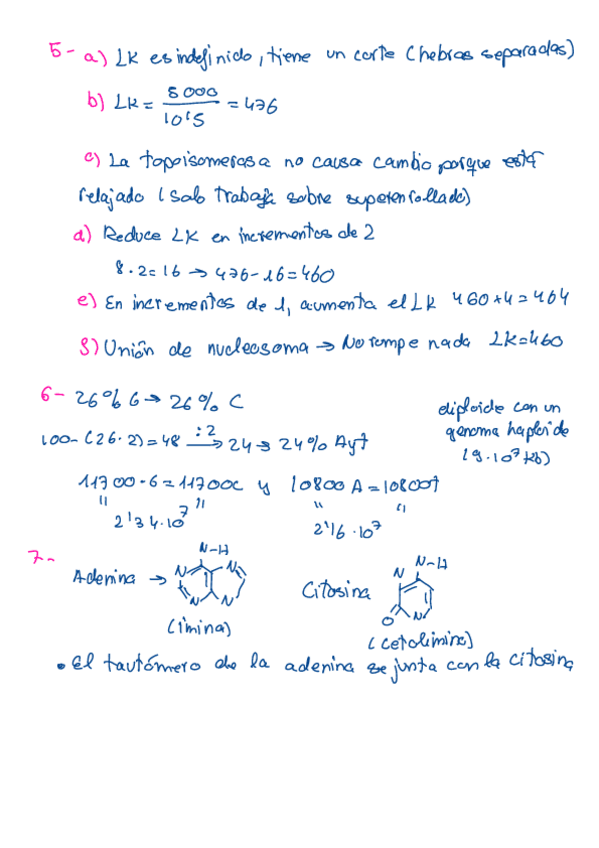 5- a) LK es indefinido, tiene un corte (hebras separadas)
b) LK = 5000 / 10'5 = 476
c) La topoisomerasa no causa cambio porque está
relajado (solo trabaja sobre superenrollado)
d) Reduce LK en incrementos de 2
8·2=16 → 476-16=460
e) En incrementos de 1, aumenta el LK 460+4=464
f) Unión de nucleosoma → No rompe nada LK=460
6- 26% G → 26% C
diploide con un
genoma haploide
(9·10⁷ kb)
100-(26·2)=48 :2 → 24 → 24% A y T
11700·G = 11700C y 10800A = 10800T
" "
2'34·10⁷
" "
2'16·10⁷
7-
Adenina →
N-H
N N N N
(imina)
Citosina
N-H
N N O
(cetoimina)
• El tautómero de la adenina se junta con la citosina